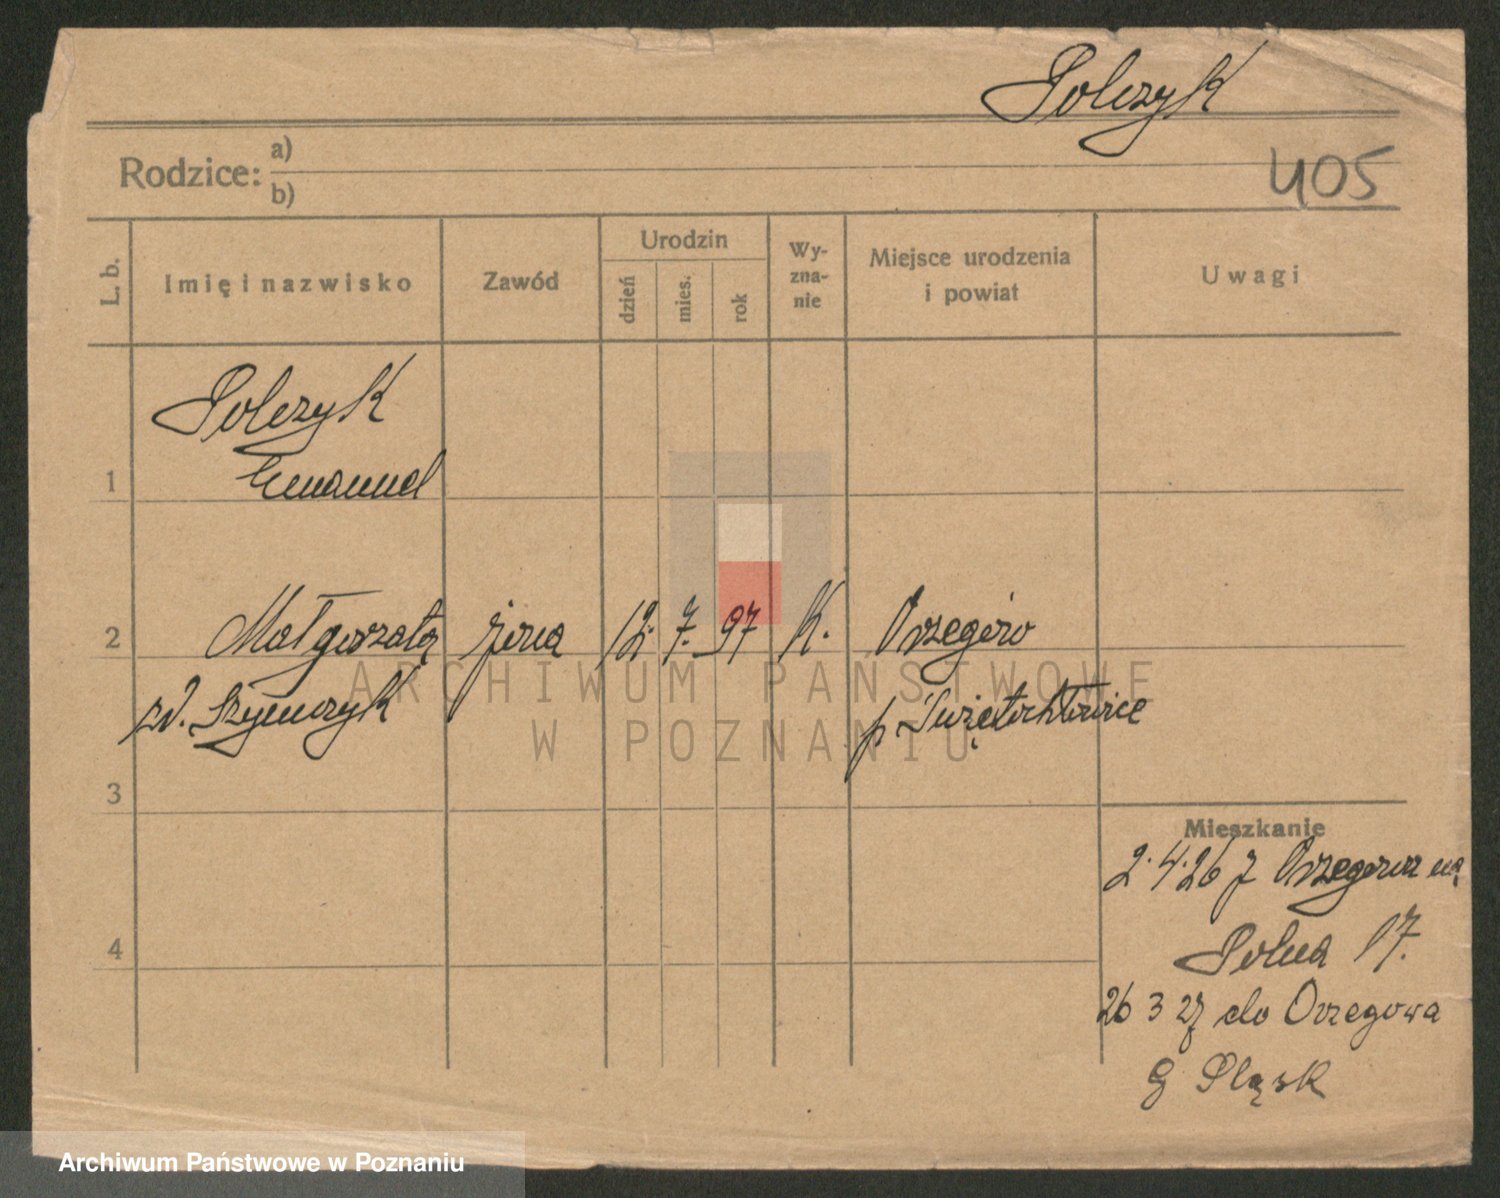 Polczyk
Rodzice: a)
b)
405
L. b.
Imię i nazwisko
Zawód
Urodzin
dzień
mies.
rok
Wy-
zna-
nie
Miejsce urodzenia
i powiat
Uwagi
Polczyk
1 Emanuel
2 Małgorzata żona 12. 7. 97 K. Orzegów
zd. Szymczyk p Świętochłowice
3
Mieszkanie
2.4.26 z Orzegowa na
Polna 17.
4
26 3 27 do Orzegowa
G Śląsk
ARCHIWUM PAŃSTWOWE
W POZNANIU
Archiwum Państwowe w Poznaniu